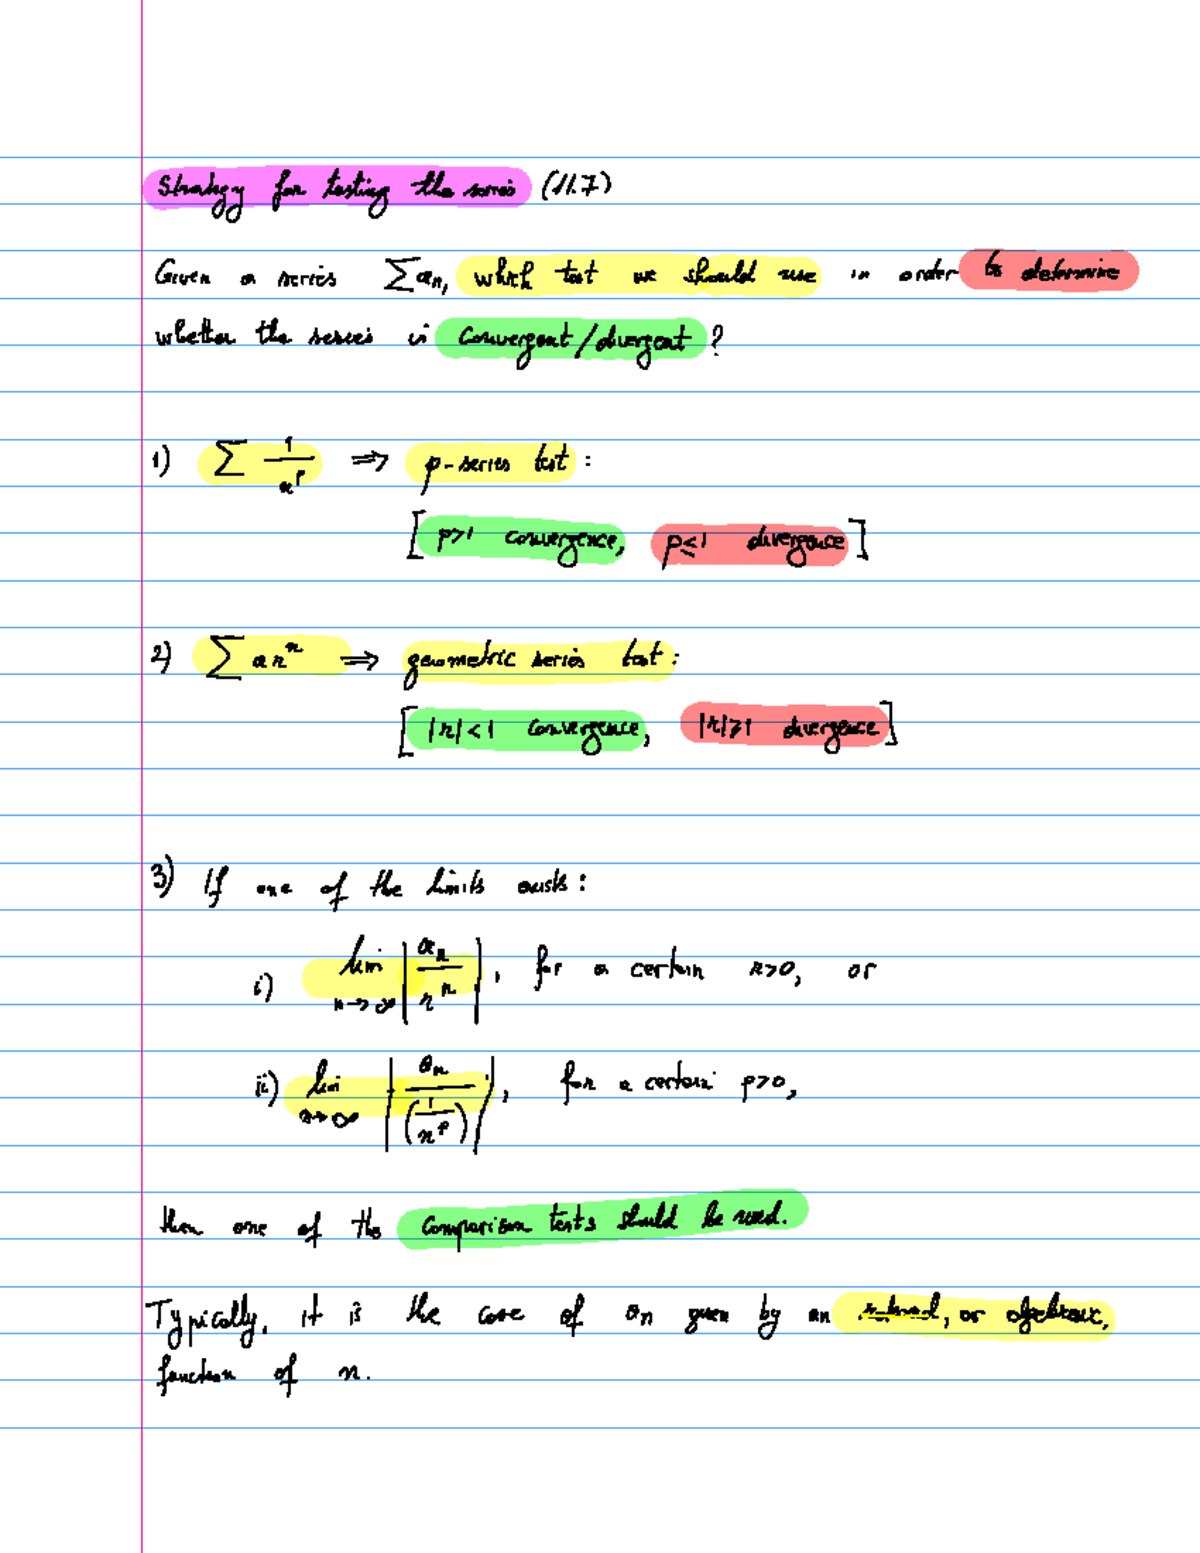 Strategy for testing the series (11.7)
Given a series ∑aₙ, which test we should use in order to determine
whether the series is convergent/divergent ?
1) ∑ 1/nᵖ ⇒ p-series test :
[p>1 convergence, p≤1 divergence]
2) ∑ arⁿ ⇒ geometric series test :
[|r|<1 convergence, |r|⩾1 divergence]
3) If one of the limits exists :
i) lim n→∞ |aₙ/rⁿ|, for a certain r>0, or
ii) lim n→∞ |aₙ/(1/nᵖ)|, for a certain p>0,
then one of the comparison tests should be used.
Typically, it is the case of aₙ given by an rational, or algebraic,
function of n.